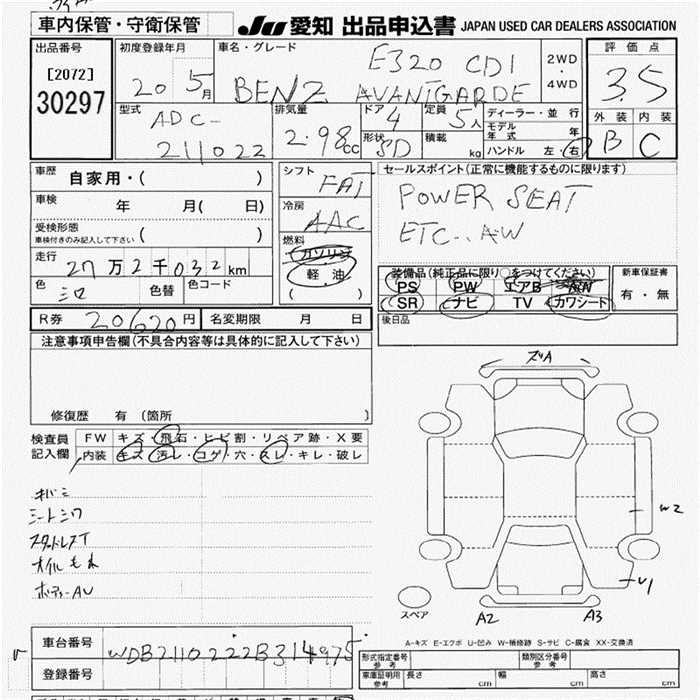 車内保管・守衛保管
JU 愛知 出品申込書 JAPAN USED CAR DEALERS ASSOCIATION
出品番号
[2072]
30297
初度登録年月
20 5月
車名・グレード
E320 CDI
BENZ AVANTGARDE
2WD
・
4WD
評価点
3.5
外装 内装
B C
型式
ADC-
211022
排気量
2.98cc
ドア 4
形状 SD
定員 5人
積載 kg
ディーラー・並行
モデル年式 年
ハンドル 左・右
車歴 自家用・( )
車検 年 月( 日)
受検形態
車検付きのみ記入して下さい ( )
走行 27万2千032km
色 シロ 色替 色コード
シフト FAT
冷房 AAC
燃料
ガソリン
軽油
( )
セールスポイント(正常に機能するものに限ります)
POWER SEAT
ETC..AW
装備品(純正品に限り○をつけてください)
PS PW エアB AW
SR ナビ TV カワシート
新車保証書
有・無
後日品
R券 20620円 名変期限 月 日
注意事項申告欄(不具合内容等は具体的に記入して下さい)
修復歴 有(箇所 )
検査員記入欄
FW キズ・飛石・ヒビ割・リペア跡・X要
内装 キズ・汚レ・コゲ・穴・スレ・キレ・破レ
シートシワ
スタッドレスT
オイルモレ
ボディーAU
ズリA
W2
U1
スペア
A2 A3
A-キズ E-エクボ U-凹み W-補修跡 S-サビ C-腐食 XX-交換済
車台番号 WDB2110222B314975
登録番号
形式指定番号 参考
類別区分番号 参考
車庫証明用 参考 長さ cm 幅 cm 高さ cm